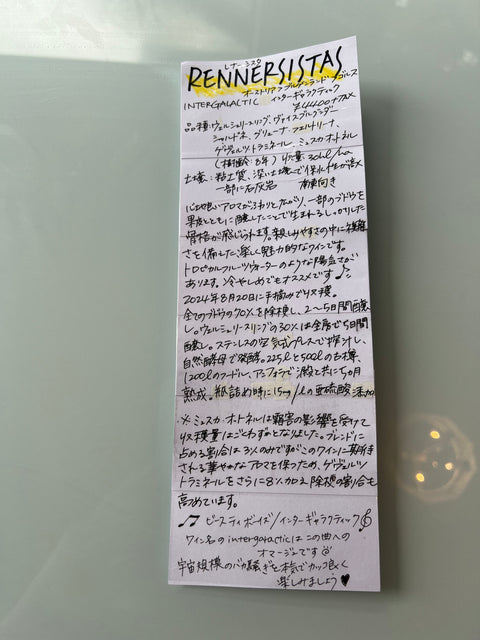 レナーシスタ
RENNERSISTAS
オーストリア ブルゲンラント ゴルス
INTERGALACTIC インターギャラクティック
¥4400+TAX
品種:ヴェルシュリースリング、ヴァイスブルグンダー
シャルドネ、グリューナー・フェルトリーナ、
ゲヴュルツトラミネール、ミュスカオットネル
(樹齢:8年) 収量:30hl/ha
土壌:粘土質、深い土壌で保水性が高く
一部に石灰岩 南東向き
心地良いアロマがふわりと広がり、一部のブドウを
果皮とともに醸したことで生まれるしっかりした
骨格が感じられます。親しみやすさの中に複雑
さを備えた、楽しく魅力的なワインです。
トロピカルフルーツウォーターのような陽気さが
あります。冷やしめでもオススメです♪
2024年8月20日に手摘みで収穫。
全てのブドウの70%を除梗し、2〜5日間醸
し。ヴェルシュリースリングの30%は全房で5日間
醸し。ステンレスの空気式プレスで搾汁し、
自然酵母で発酵。225lと500lの古樽、
1200lのフードル、アンフォラで澱と共に5カ月
熟成。瓶詰め時に15mg/lの亜硫酸添加
※ミュスカ・オットネルは霜害の影響を受けて
収穫量はごくわずかとなりました。ブレンドに
占める割合は3%のみですがこのワインに期待
される華やかなアロマを保つため、ゲヴュルツ
トラミネールをさらに8%加え除梗の割合も
高めています。
♫ ビースティボーイズ/インターギャラクティック
ワイン名のintergalacticはこの曲への
オマージュです
宇宙規模のバカ騒ぎを本気でカッコ良く
楽しみましょう♥